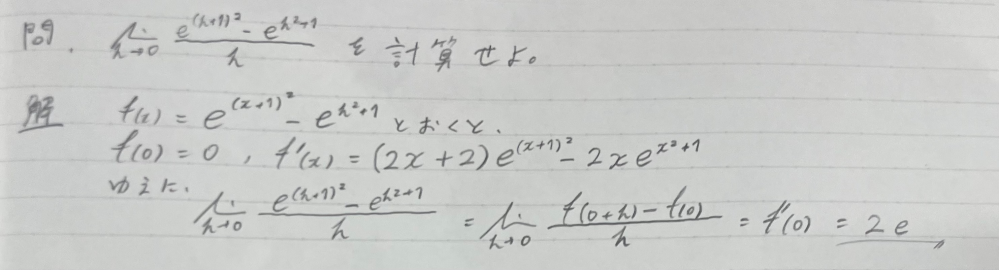 問. lim_{h→0} \frac{e^{(h+1)^2} - e^{h^2+1}}{h} を計算せよ。
解 f(x) = e^{(x+1)^2} - e^{h^2+1} とおくと、
f(0) = 0 , f'(x) = (2x+2)e^{(x+1)^2} - 2xe^{x^2+1}
ゆえに、
lim_{h→0} \frac{e^{(h+1)^2} - e^{h^2+1}}{h} = lim_{h→0} \frac{f(0+h) - f(0)}{h} = f'(0) = 2e 〃